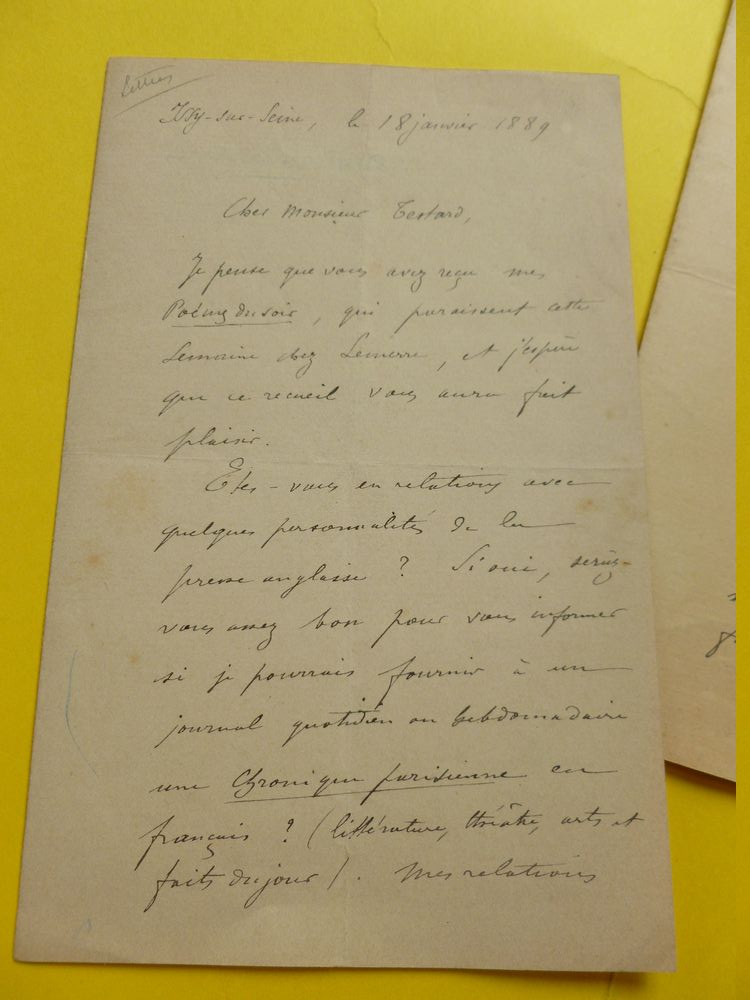 Lettres
Issy-sur-Seine, le 18 janvier 1889
Cher Monsieur Testard,
Je pense que vous avez reçu mes
Poèmes du soir, qui paraissent cette
Semaine chez Lemerre, et j'espère
que ce recueil vous aura fait
plaisir.
Etes-vous en relations avec
quelques personnalités de la
presse anglaise ? Si oui, seriez-
vous assez bon pour vous informer
si je pourrais fournir à un
journal quotidien ou hebdomadaire
une Chronique parisienne en
français ? (littérature, théâtre, arts et
faits du jour). Mes relations